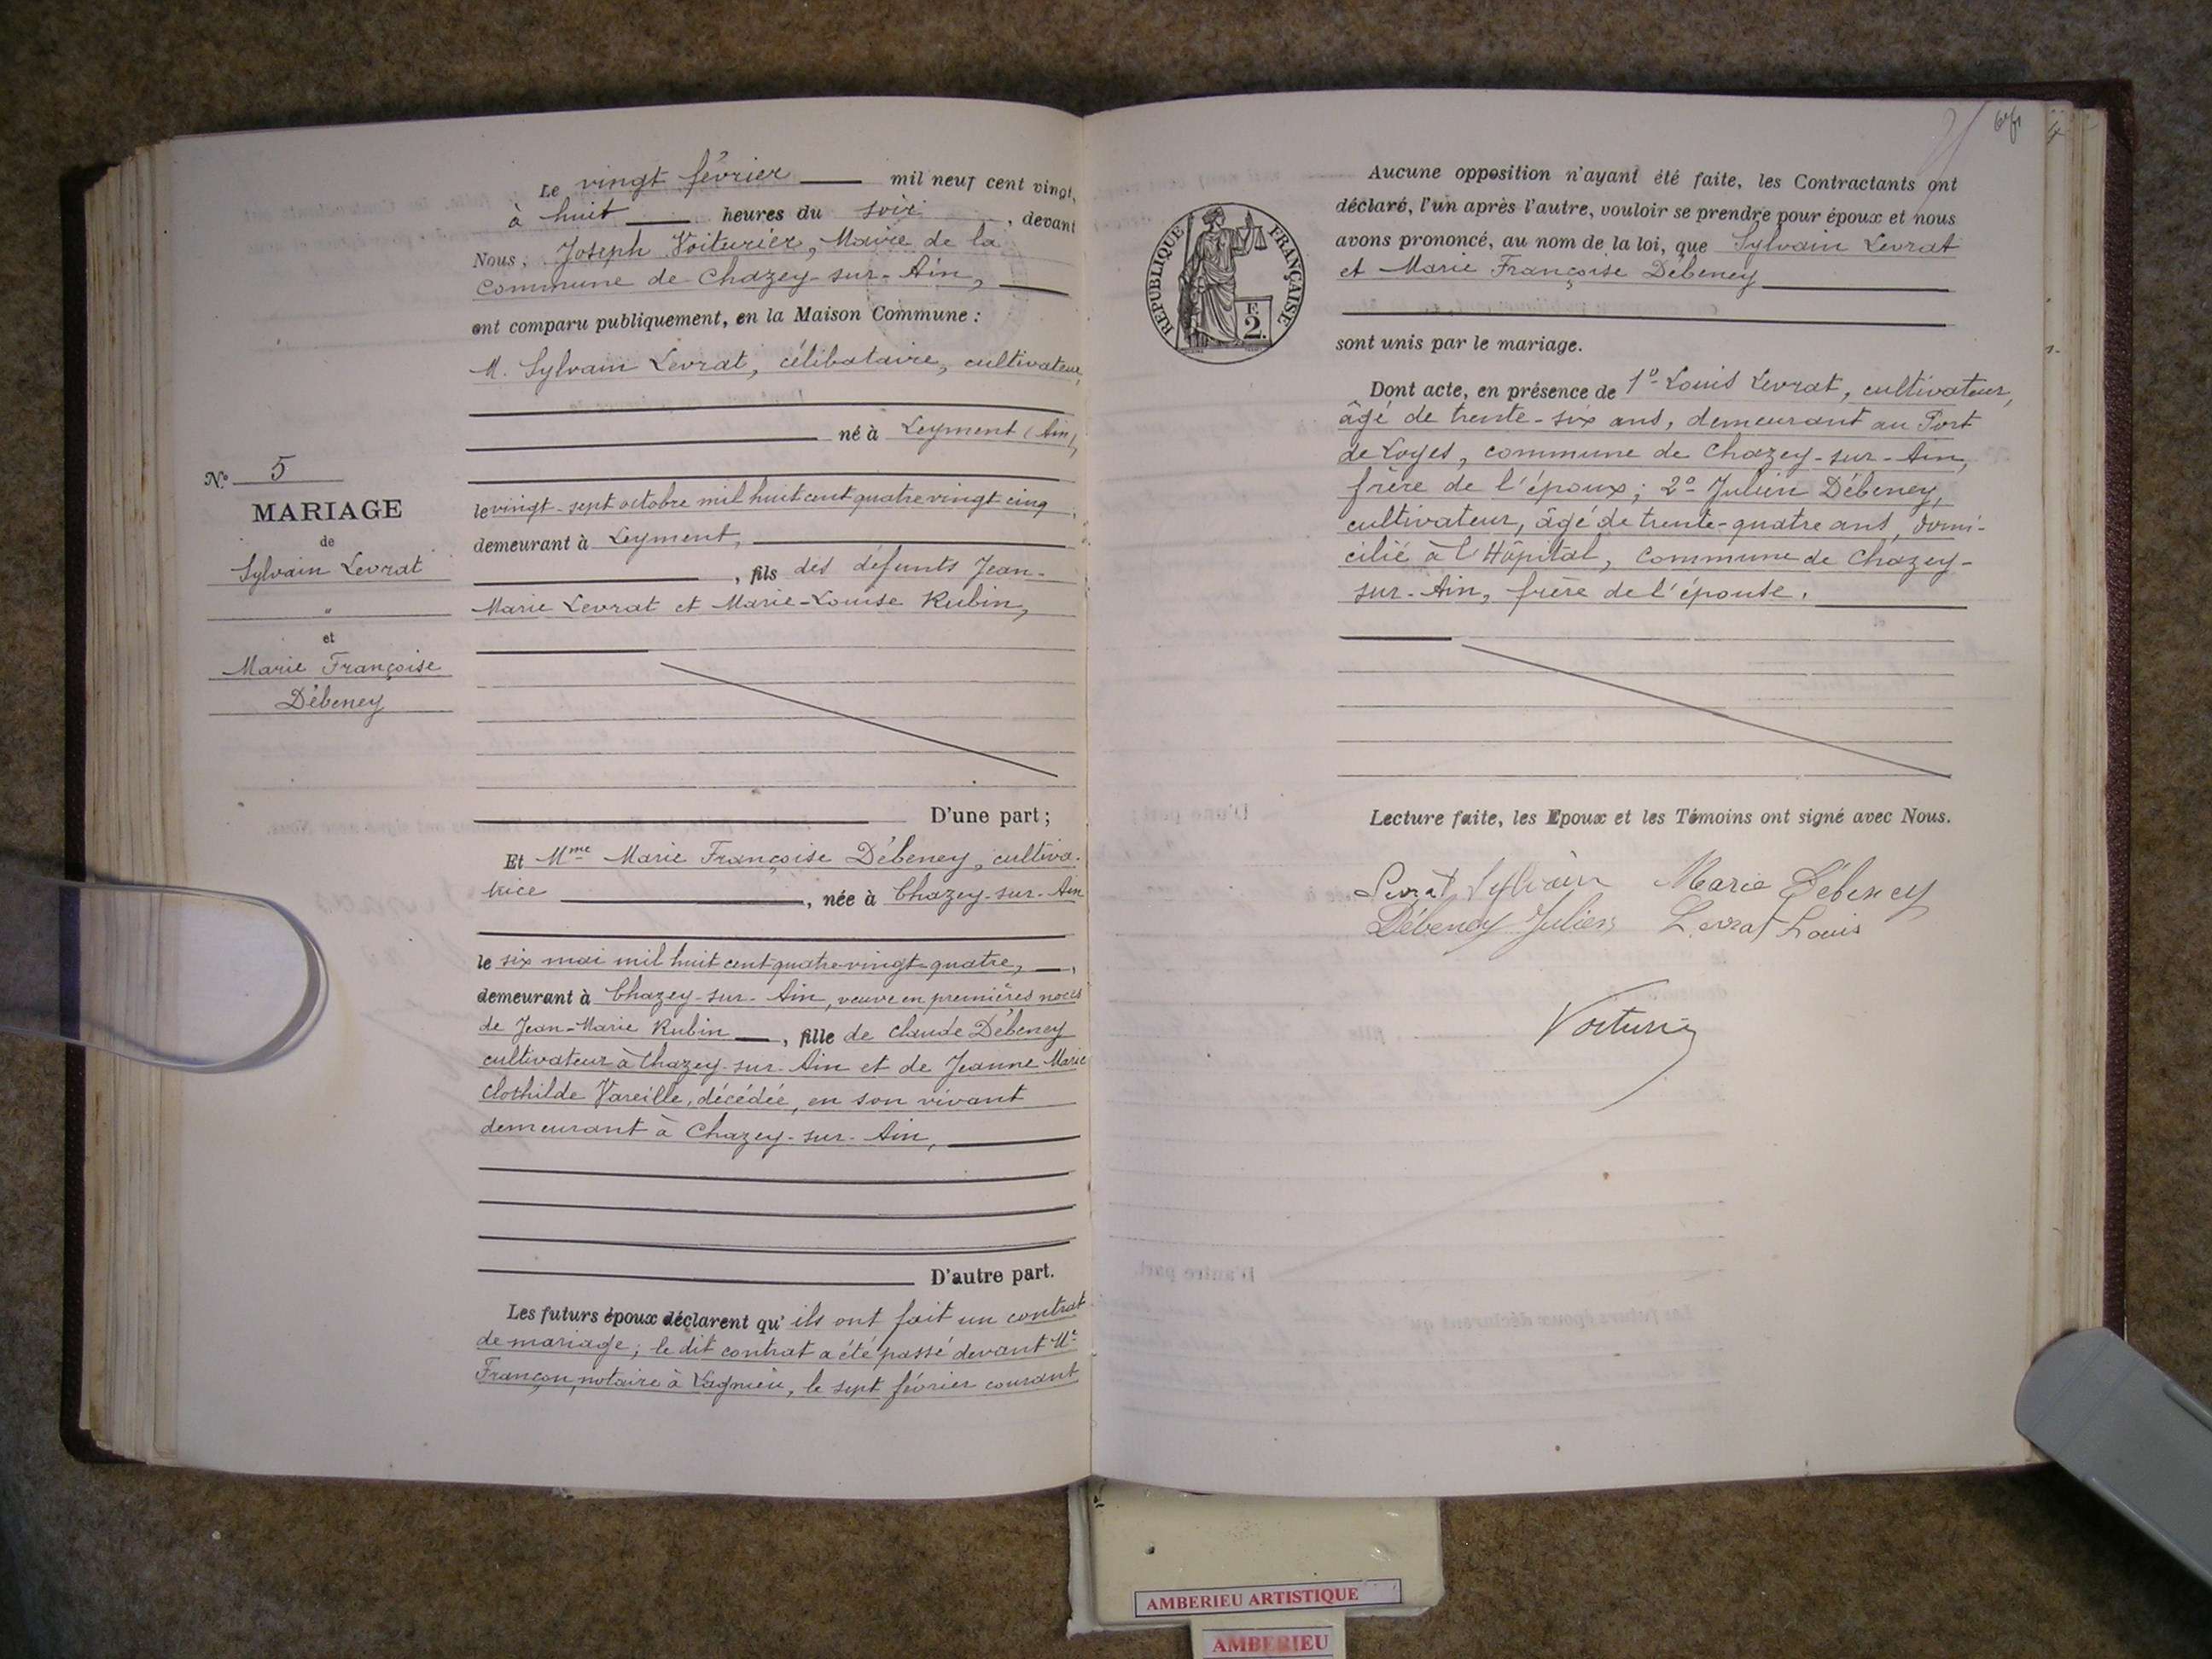 Le vingt février mil neuf cent vingt,
à huit heures du soir, devant
Nous, Joseph Voiturier, Maire de la
Commune de Chazey-sur-Ain,
ont comparu publiquement, en la Maison Commune :
M. Sylvain Levrat, célibataire, cultivateur,
né à Leyment (Ain),
le vingt-sept octobre mil huit cent quatre vingt cinq,
demeurant à Leyment,
, fils des défunts Jean-
Marie Levrat et Marie-Louise Rubin,
N° 5
MARIAGE
de
Sylvain Levrat
"
et
Marie Françoise
Débeney
D'une part ;
Et Mme Marie Françoise Débeney, cultiva-
trice, née à Chazey-sur-Ain
le six mai mil huit cent quatre-vingt-quatre,
demeurant à Chazey-sur-Ain, veuve en premières noces
de Jean-Marie Rubin, fille de Claude Débeney
cultivateur à Chazey-sur-Ain et de Jeanne Marie
Clothilde Vareille, décédée, en son vivant
demeurant à Chazey-sur-Ain,
D'autre part.
Les futurs époux déclarent qu'ils ont fait un contrat
de mariage ; le dit contrat a été passé devant Me
Françon, notaire à Lagnieu, le sept février courant
REPUBLIQUE FRANÇAISE
F.
2.
Aucune opposition n'ayant été faite, les Contractants ont
déclaré, l'un après l'autre, vouloir se prendre pour époux et nous
avons prononcé, au nom de la loi, que Sylvain Levrat
et Marie Françoise Débeney
sont unis par le mariage.
Dont acte, en présence de 1°- Louis Levrat, cultivateur,
âgé de trente-six ans, demeurant au Port
de Loyes, commune de Chazey-sur-Ain,
frère de l'époux ; 2° Julien Débeney,
cultivateur, âgé de trente-quatre ans, domi-
cilié à l'Hôpital, Commune de Chazey-
sur-Ain, frère de l'épouse.
Lecture faite, les Epoux et les Témoins ont signé avec Nous.
Levrat Sylvain Marie Débeney
Débeney Julien Levrat Louis
Voiturier
AMBERIEU ARTISTIQUE
AMBERIEU